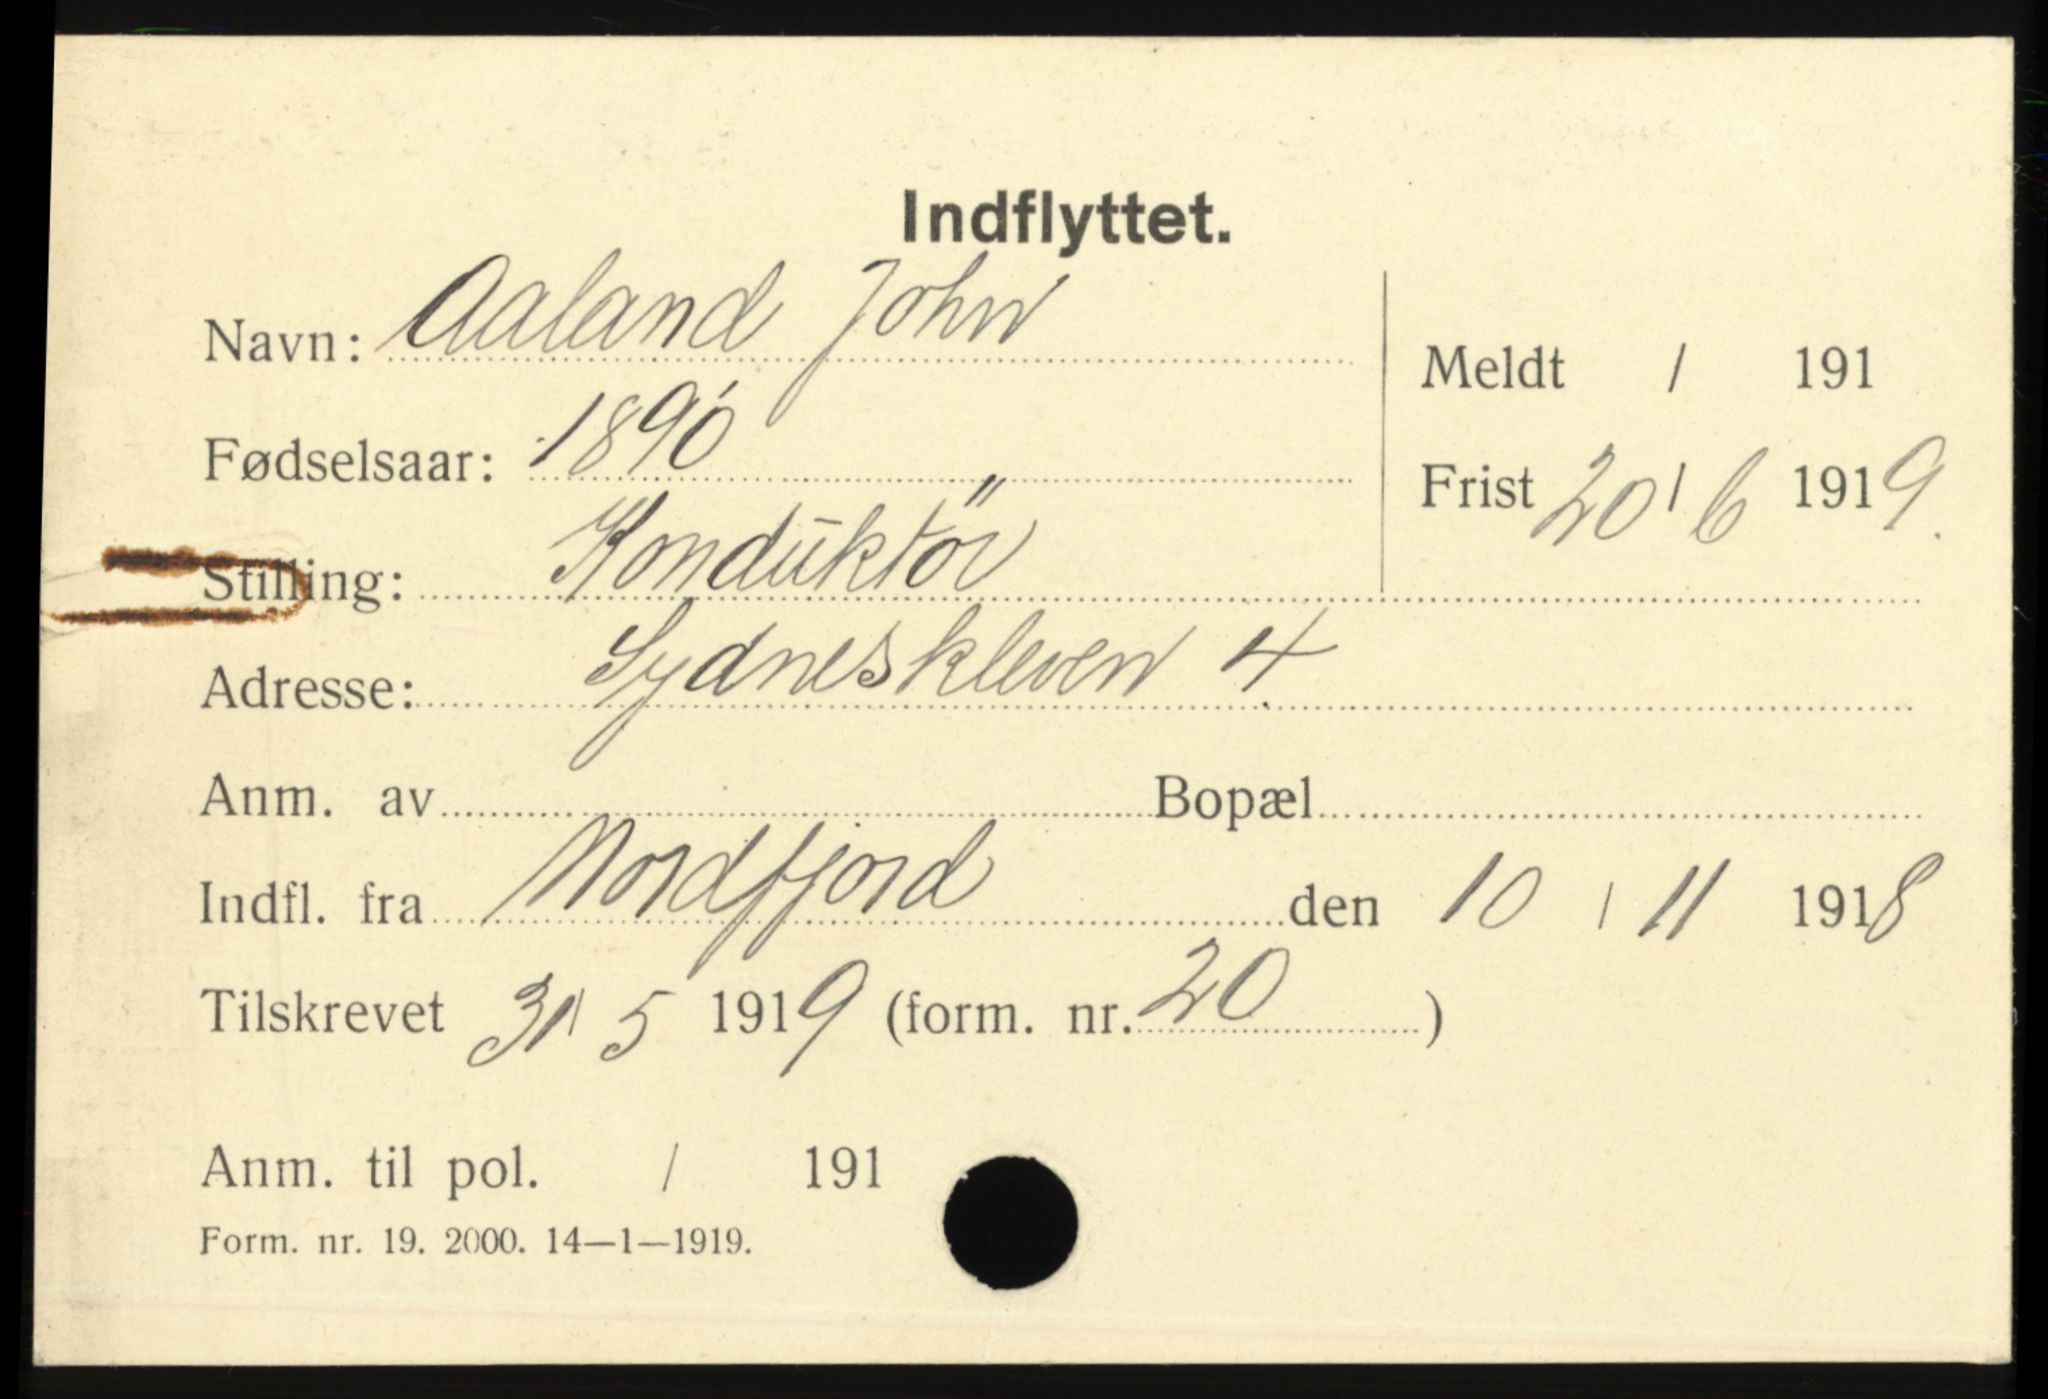 Indflyttet.
Navn: Aaland John
Meldt / 191
Fødselsaar: 1890
Frist 20/6 1919.
Stilling: Konduktör
Adresse: Sydneskleven 4.
Anm. av Bopæl
Indfl. fra Nordfjord den 10 / 11 1918
Tilskrevet 31/5 1919 (form. nr. 20)
Anm. til pol. / 191
Form. nr. 19. 2000. 14—1—1919.